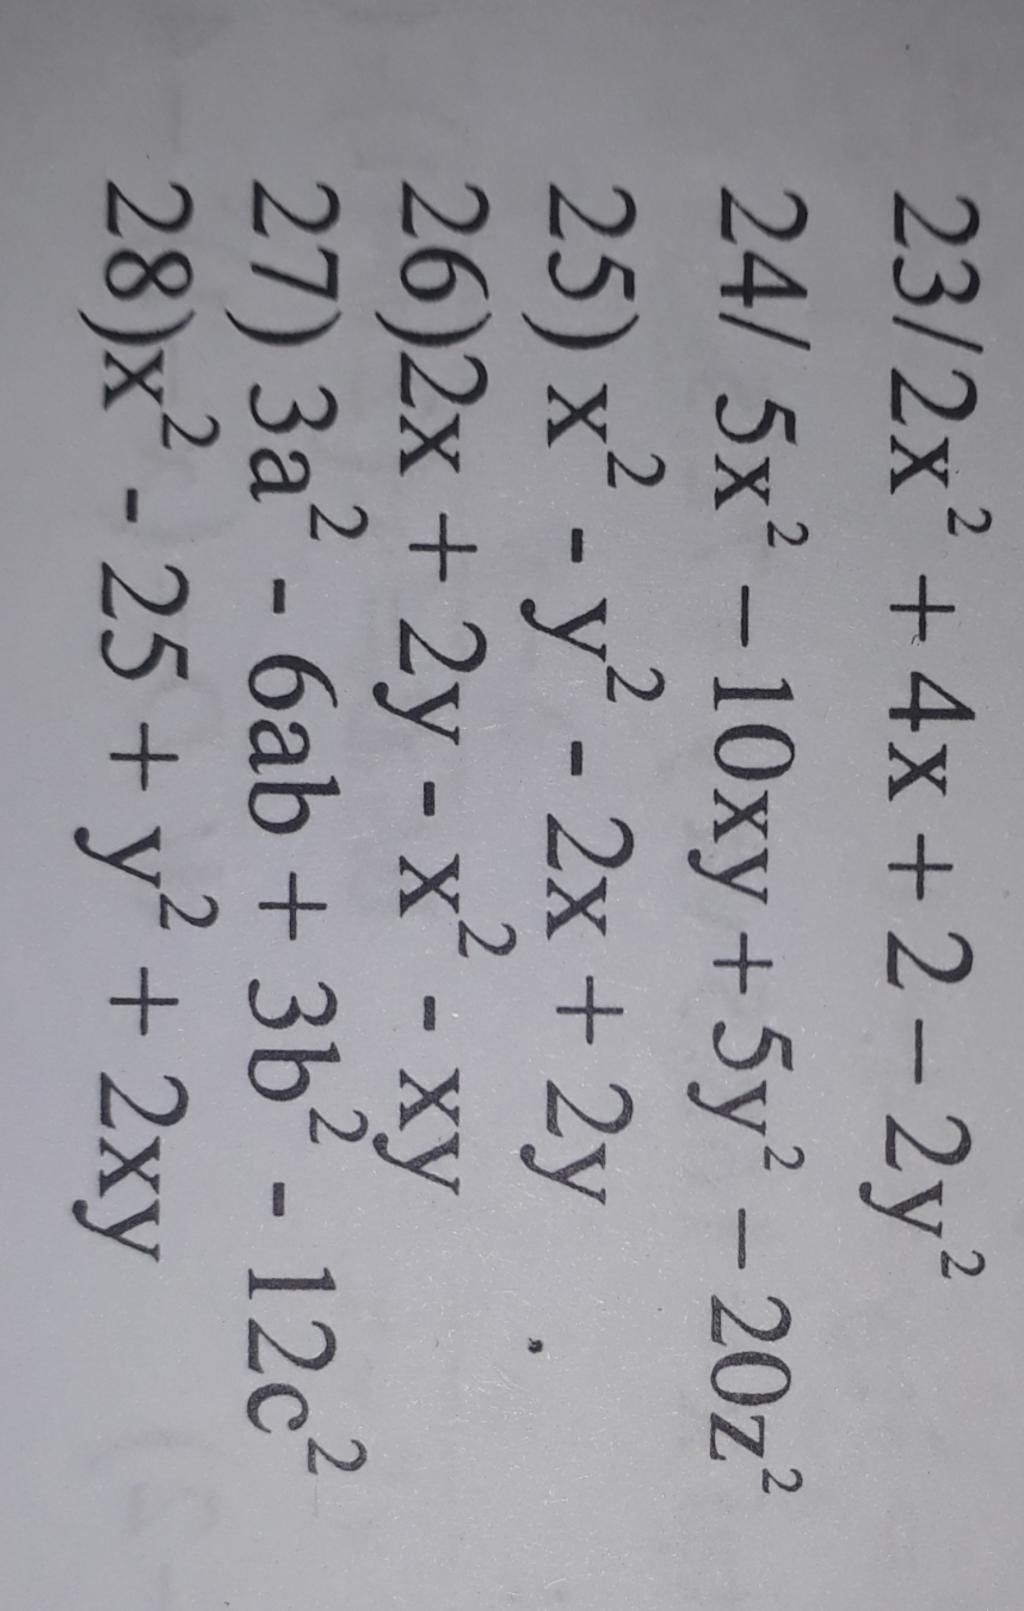 23/2x² + 4x + 2 – 2y²
24/ 5x² – 10xy + 5y² – 20z²
25) x² - y² - 2x + 2y
26)2x + 2y - x² - xy
27) 3a² - 6ab + 3b² - 12c²
28)x² - 25 + y² + 2xy